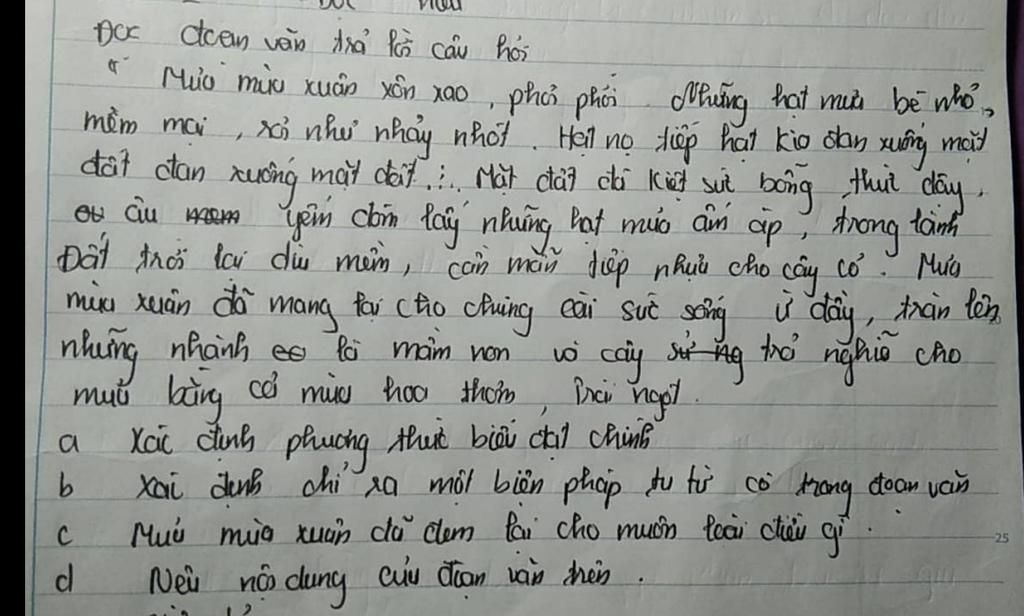 Đọc đoạn văn trả lời câu hỏi
" Mưa mùa xuân xôn xao, phơi phới. Những hạt mưa bé nhỏ,
mềm mại, rơi như nhảy nhót. Hạt nọ tiếp hạt kia đan xuống mặt
đất đan xuống mặt đất... Mặt đất đã kiệt sức bỗng thức dậy,
âu yếm đón lấy những hạt mưa ấm áp, trong lành
Đất trời lại dịu mềm, cần mẫn tiếp nhựa cho cây cỏ. Mưa
mùa xuân đã mang lại cho chúng cái sức sống ứ đầy, tràn lên
những nhành lá mầm non và cây trả nghĩa cho
mưa bằng cả mùa hoa thơm, trái ngọt.
a Xác định phương thức biểu đạt chính
b Xác định chỉ ra một biện pháp tu từ có trong đoạn văn
c Mưa mùa xuân đã đem lại cho muôn loài điều gì.
d Nêu nội dung của đoạn văn trên.
25